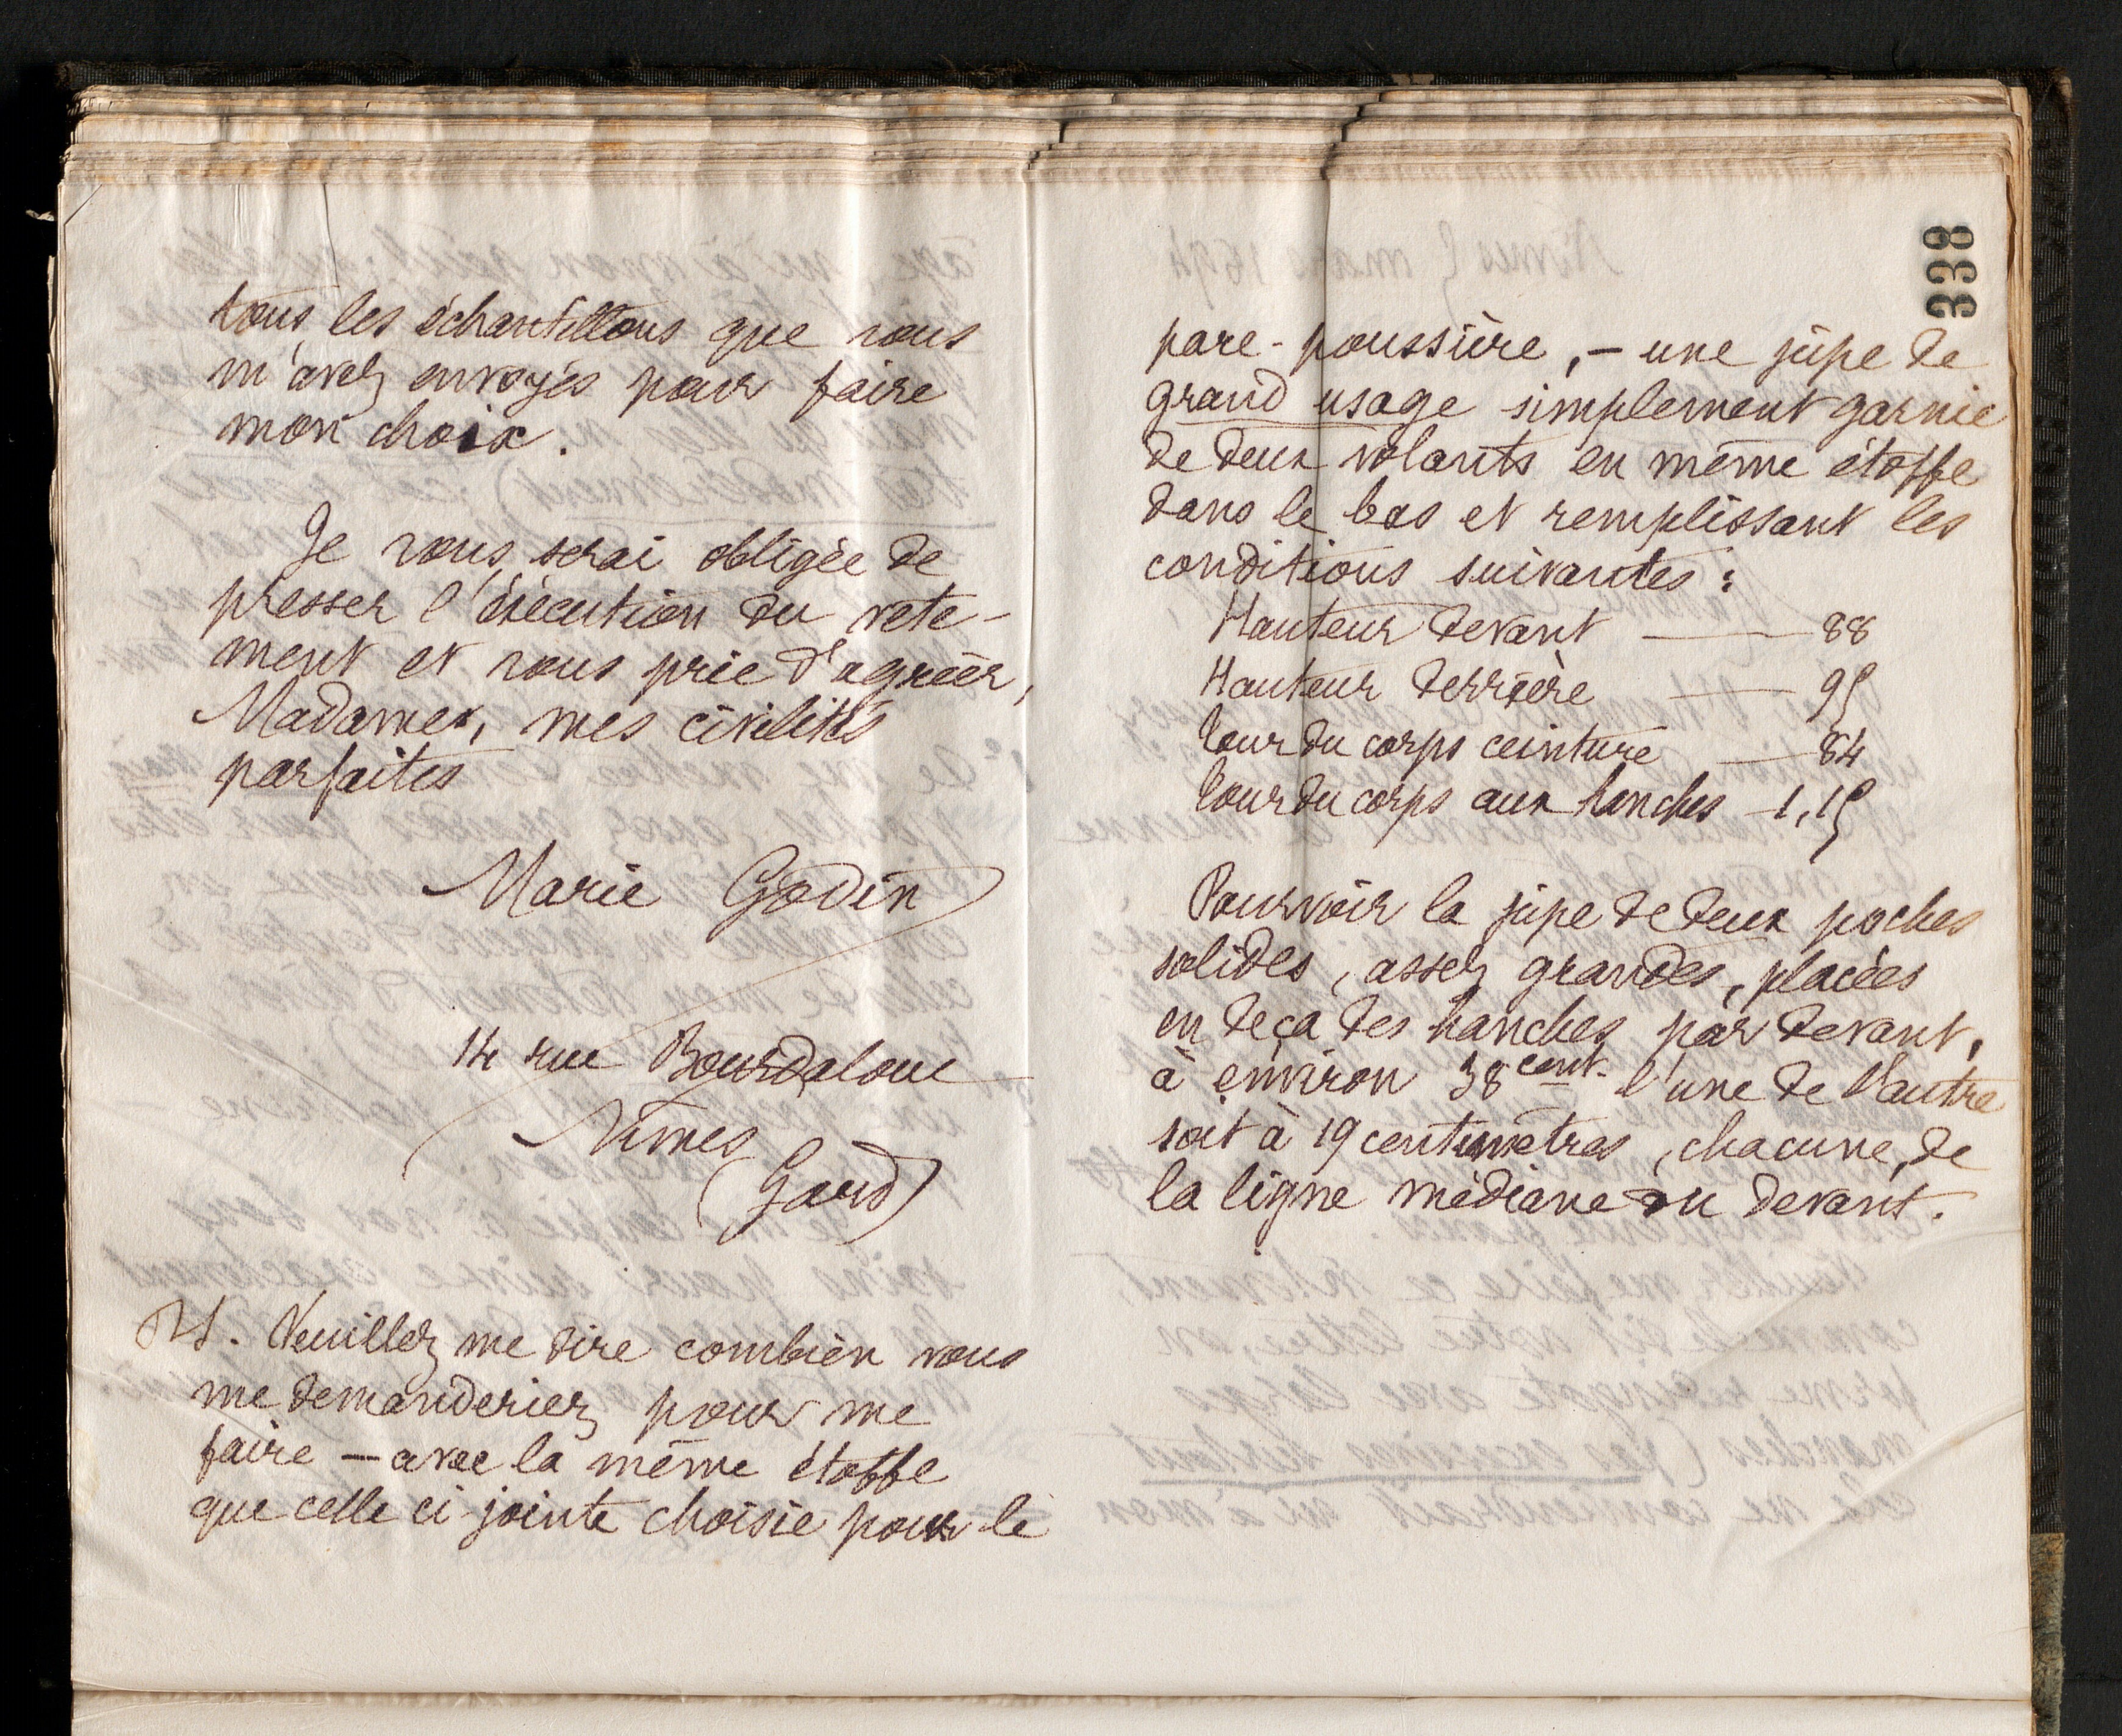 tous les échantillons que vous
m'avez envoyés pour faire
mon choix.
Je vous serai obligée de
presser l'éxécution du vete-
ment et vous prie d'agréer,
Madame, mes civilités
parfaites
Marie Godin
14 rue Bourdaloue
Nîmes
(Gard)
P.S. Veuillez me dire combien vous
me demanderiez pour me
faire — avec la même étoffe
que celle ci-jointe choisie pour le
338
pare-poussière, — une jupe de
grand usage simplement garnie
de deux volants en même étoffe
dans le bas et remplissant les
conditions suivantes :
Hauteur devant — 88
Hauteur derrière — 95
Tour du corps ceinture — 84
Tour du corps aux hanches — 1,15
Pourvoir la jupe de deux poches
solides, assez grandes, placées
en deça des hanches par devant,
à environ 38 cent. l'une de l'autre
soit à 19 centimètres, chacune, de
la ligne médiane du devant.